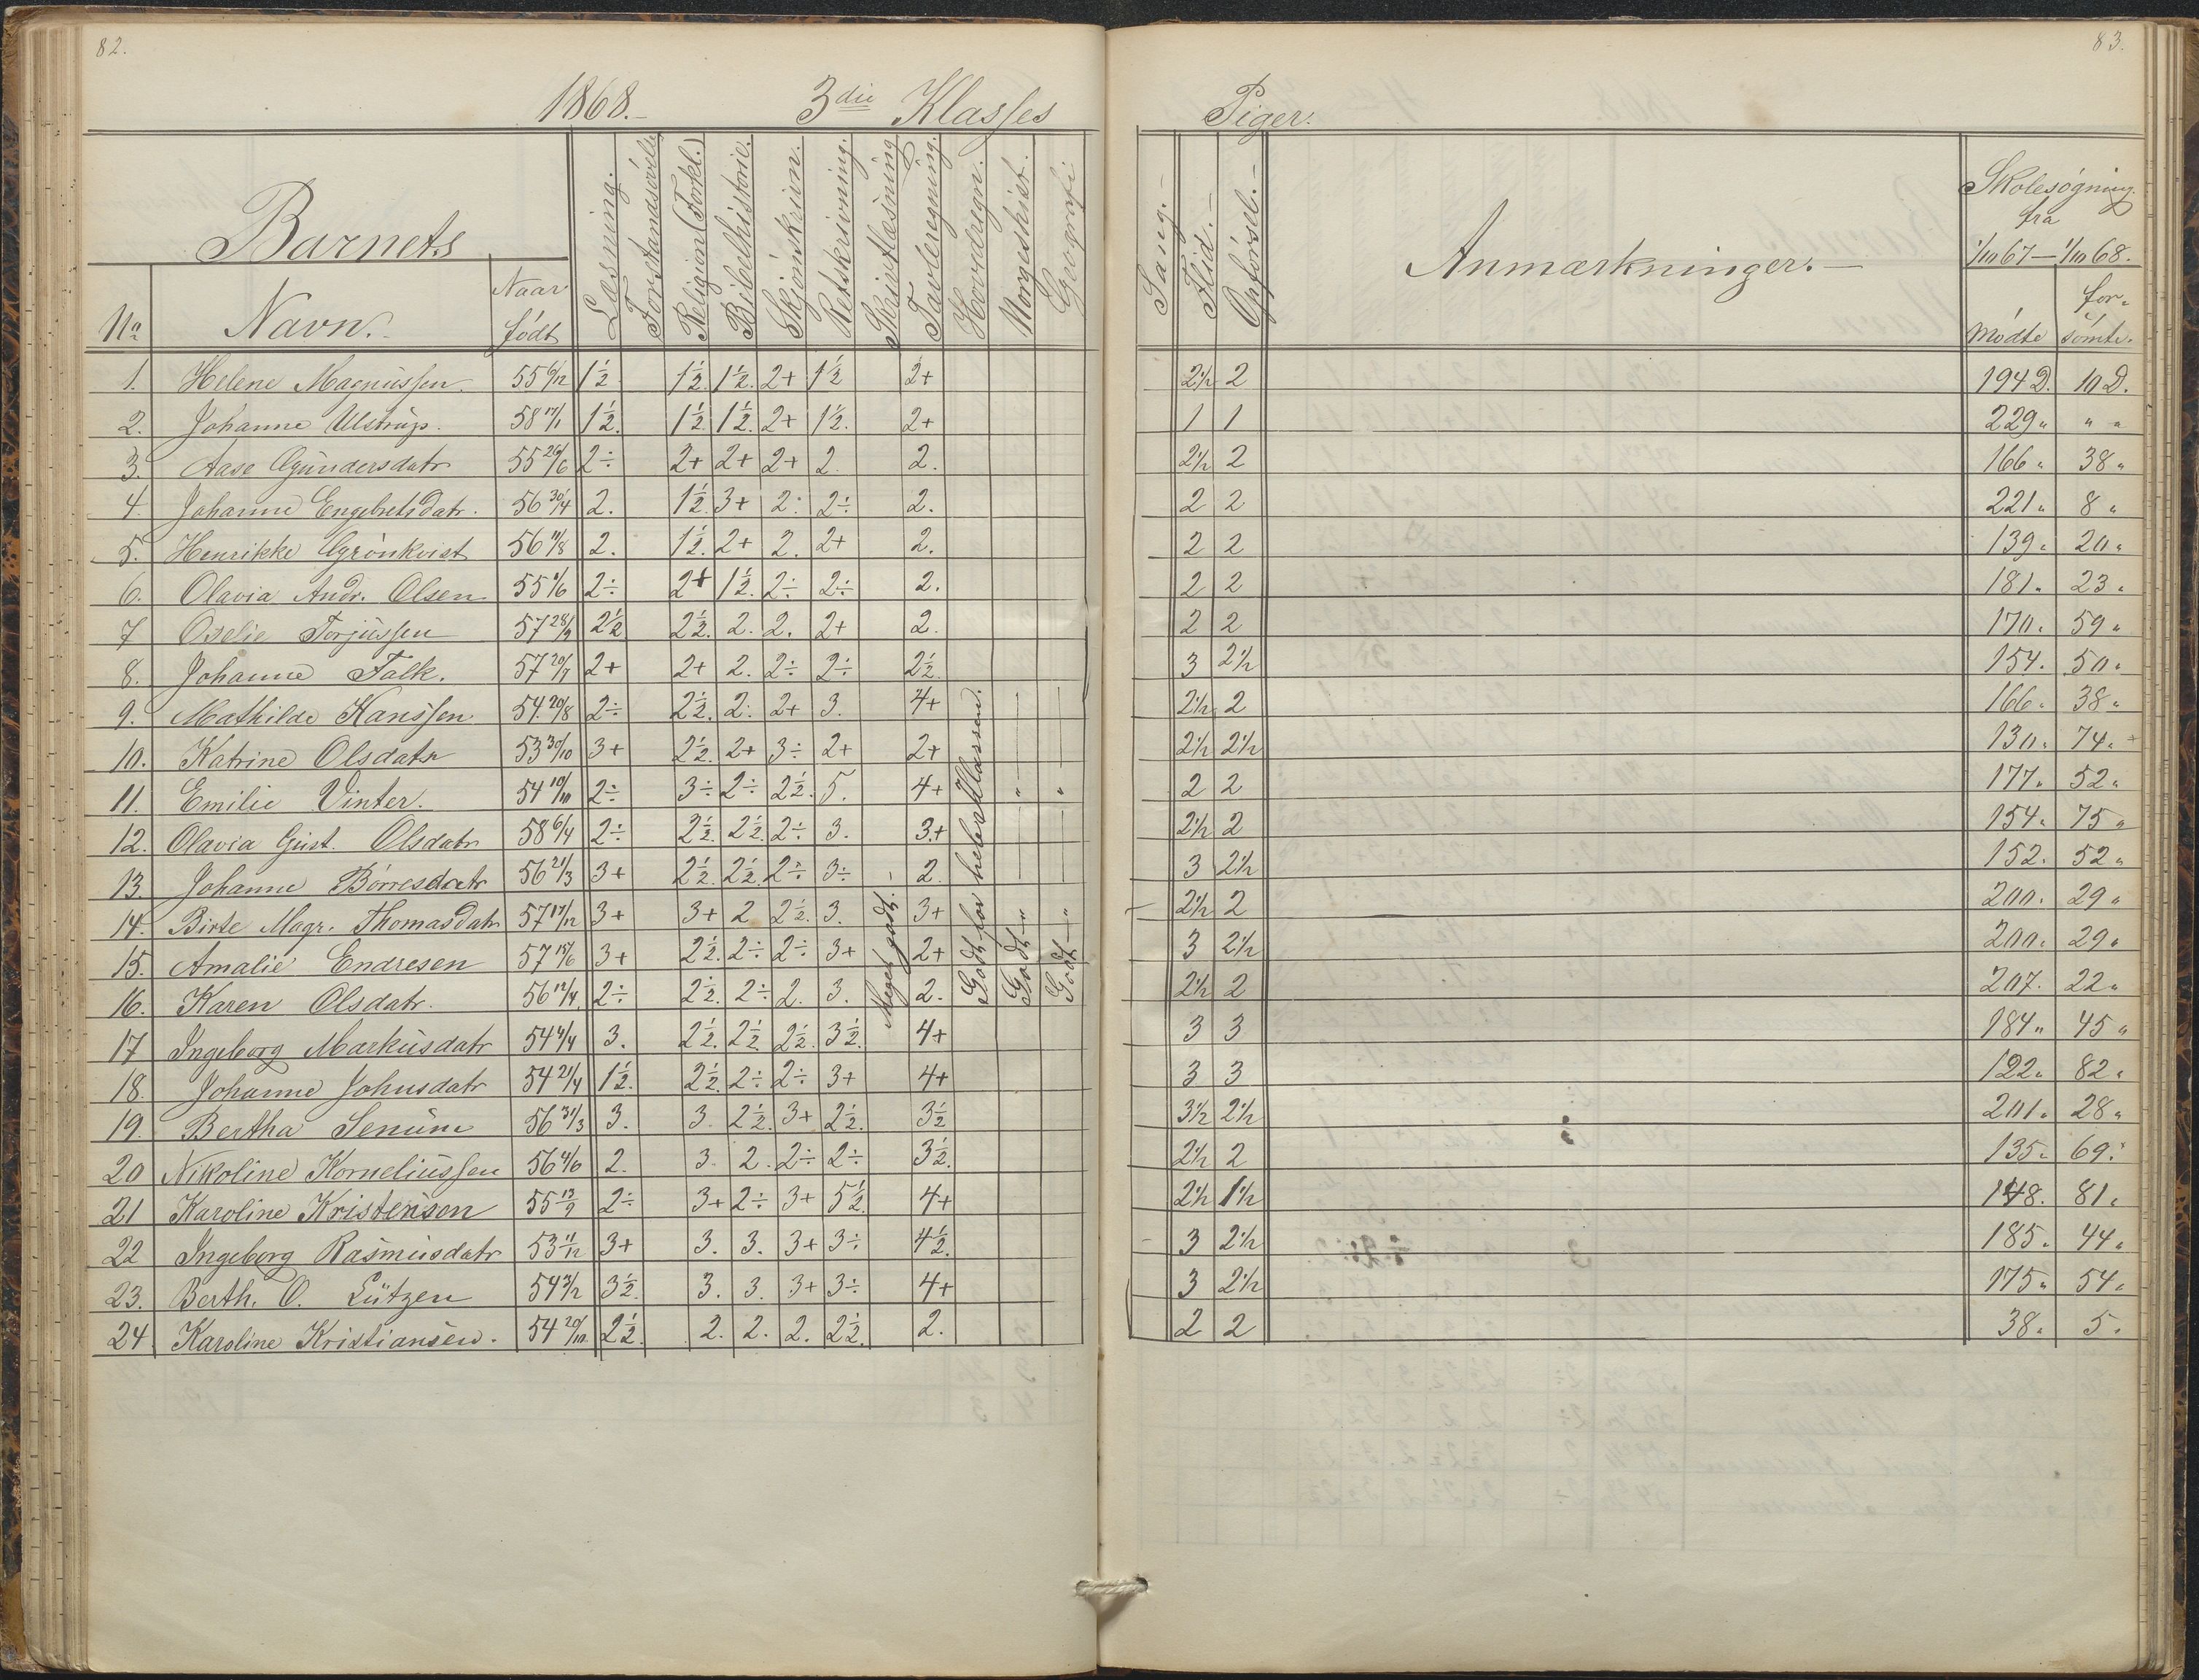 82.
83.
1868.– 3die Klasses
Piger.
Barnets
No Navn. Naar født
Læsning.
Forstandsøvelse
Religion (Forkl.)
Bibelhistorie.
Skjønskrivn.
Retskrivning.
Skrivtlæsning
Tavleregning.
Hovedregn.
Norgeshist.
Geografi
Sang.–
Flid.–
Opførsel.–
Anmærkninger.–
Skolesøgning
fra
1/10 67–1/10 68.
mødte forsømte.
1. Helene Magnussen 55 6/12 1½ 1½. 1½. 2+ 1½ 2+ 2½ 2 194 D. 10 D.
2. Johanne Ulstrup. 58 17/1 1½. 1½ 1½ 2+ 1½. 2+ 1 1 229 " " "
3. Aase Gundersdatr 55 26/6 2÷ 2+ 2+ 2+ 2. 2. 2½ 2 166 " 38 "
4. Johanne Engebretsdatr. 56 30/4 2. 1½. 3+ 2. 2÷ 2. 2 2 221 " 8 "
5. Henrikke Grønkvist 56 11/8 2. 1½. 2+ 2. 2+ 2. 2 2 139 " 20 "
6. Olavia Andr. Olsen 55 1/6 2÷ 2+ 1½. 2÷ 2÷ 2. 2 2 181 " 23 "
7 Oselie Torjussen 57 28/9 2½ 2½. 2. 2. 2+ 2. 2 2 170 " 59 "
8. Johanne Falk. 57 20/7 2+ 2+ 2. 2÷ 2÷ 2½. 3 2½ 154 " 50 "
9. Mathilde Hanssen 54 20/8 2÷ 2½. 2. 2+ 3. 4+ 2½ 2 166 " 38 "
10. Katrine Olsdatr 53 30/10 3+ 2½. 2+ 3÷ 2+ 2+ 2½ 2½ 130 " 74 "
11. Emilie Vinter. 54 10/10 2÷ 3÷ 2÷ 2½. 5. 4+ 2 2 177 " 52 "
12. Olavia Gust. Olsdatr 58 6/4 2÷ 2½. 2½. 2÷ 3. 3+ 2½ 2 154 " 75 "
13. Johanne Børresdatr 56 21/3 3+ 2½. 2½. 2÷ 3÷ 2. 3 2½ 152 " 52 "
14. Birte Magr. Thomasdatr 57 17/12 3+ 3+ 2 2½. 3. 3+ 2½ 2 200 " 29 "
15. Amalie Endresen 57 15/6 3+ 2½. 2÷ 2÷ 3+ 2+ 3 2½ 200 " 29 "
16. Karen Olsdatr. 56 12/4 2÷ 2½. 2÷ 2. 3. 2. 2½ 2 207 " 22 "
Meget godt.
Godt for hele Klassen.
Godt – " –
Godt – " –
17 Ingeborg Markusdatr 54 4/4 3. 2½. 2½. 2½. 3½. 4+ 3 3 184 " 45 "
18. Johanne Johnsdatr 54 21/4 1½. 2½. 2÷ 2÷ 3+ 4+ 3 3 122 " 82 "
19. Bertha Senum 56 31/3 3. 3. 2½. 3+ 2½. 3½ 3½ 2½ 201 " 28 "
20 Nikoline Korneliussen 56 4/6 2. 3. 2. 2÷ 2÷ 3½. 2½ 2 135 " 69 "
21 Karoline Kristenson 55 13/9 2÷ 3+ 2÷ 3+ 5½. 4+ 2½ 1½ 148. 81 "
22 Ingeborg Rasmusdatr 53 11/12 3+ 3. 3. 3+ 3÷ 4½. 3 2½ 185 " 44 "
23. Berth. O. Lützen 54 3/2 3½ 3. 3. 3+ 3÷ 4+ 3 2½ 175 " 54 "
24. Karoline Kristiansen. 54 20/10 2½. 2. 2. 2. 2½. 2. 2 2 38 " 5 "